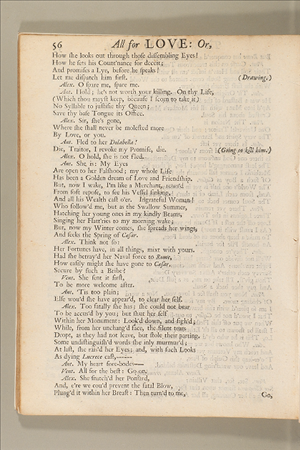 56 All for LOVE: Or,
How she looks out through those dissembling Eyes!
How he sets his Count'nance for deceit;
And promises a Lye, before he speaks!
Let me dispatch him first. (Drawing.)
Alex. O spare me, spare me.
Ant. Hold; he's not worth your killing. On thy Life,
(Which thou mayst keep, because I scorn to take it)
No Syllable to justifie thy Queen;
Save thy base Tongue its Office.
Alex. Sir, she's gone,
Where she shall never be molested more
By Love, or you.
Ant. Fled to her Dolabella!
Die, Traitor, I revoke my Promise, die. (Going to kill him.)
Alex. O hold, she is not fled.
Ant. She is: My Eyes
Are open to her Falshood; my whole Life
Has been a Golden dream of Love and Friendship.
But, now I wake, I'm like a Merchant, rows'd
From soft repose, to see his Vessel sinking,
And all his Wealth cast o'er. Ingrateful Woman!
Who follow'd me, but as the Swallow Summer,
Hatching her young ones in my kindly Beams,
Singing her Flatt'ries to my morning wake;
But, now my Winter comes, she spreads her wings,
And seeks the Spring of Cæsar.
Alex. Think not so:
Her Fortunes have, in all things, mixt with yours.
Had she betray'd her Naval force to Rome,
How easily might she have gone to Cæsar,
Secure by such a Bribe!
Vent. She sent it first,
To be more welcome after.
Ant. 'Tis too plain;
Else wou'd she have appear'd, to clear her self.
Alex. Too fatally she has; she could not bear
To be accus'd by you; but shut her self
Within her Monument: Look'd down, and sigh'd;
While, from her unchang'd face, the silent tears
Dropt, as they had not leave, but stole their parting.
Some undistinguish'd words she inly murmur'd;
At last, she rais'd her Eyes; and, with such Looks
As dying Lucrece cast,——
Ant. My heart forebodes——
Vent. All for the best: Go on.
Alex. She snatch'd her Ponyard,
And, e're we cou'd prevent the fatal Blow,
Plung'd it within her Breast: Then turn'd to me,
Go,